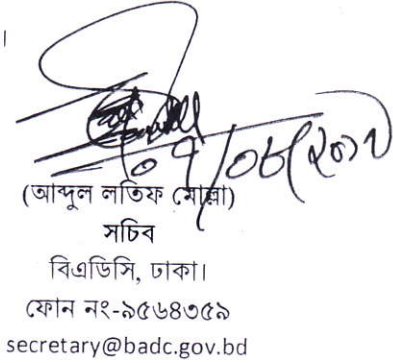 ।
(আব্দুল লতিফ মোল্লা)
সচিব
বিএডিসি, ঢাকা।
ফোন নং-৯৫৬৪৩৫৯
secretary@badc.gov.bd